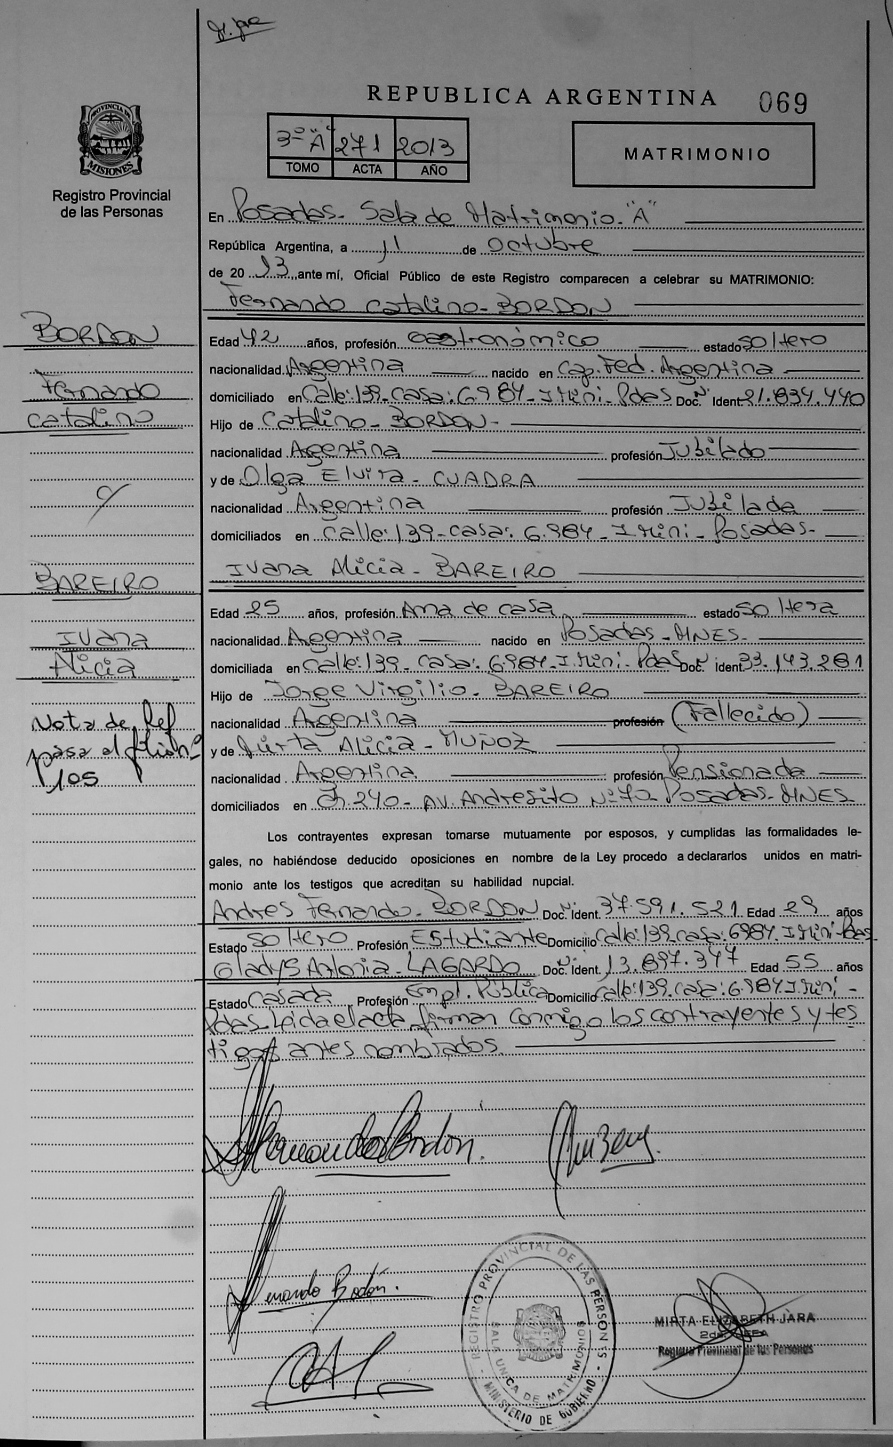 REPUBLICA ARGENTINA
069
3º "A" 271 2013
TOMO ACTA AÑO
MATRIMONIO
PROVINCIA DE MISIONES
Registro Provincial
de las Personas
En Posadas- Sala de Matrimonio-"A"
República Argentina, a 11 de octubre
de 20 13 ante mí, Oficial Público de este Registro comparecen a celebrar su MATRIMONIO:
Fernando Catalino- BORDON
BORDON
Fernando
Catalino
c/
BAREIRO
Ivana
Alicia
Nota de Ref
pasa al folio nº
105
Edad 42 años, profesión Gastronómico estado soltero
nacionalidad Argentina nacido en Cap. Fed. Argentina
domiciliado en Calle:139-casa:6.984-I.Mini-Pdas Doc. Nº Ident. 21.834.440
Hijo de Catalino- BORDON-
nacionalidad Argentina profesión Jubilado
y de Olga Elvira- CUADRA
nacionalidad Argentina profesión Jubilada
domiciliados en Calle:139-casa:6.984-I.Mini-Posadas-
Ivana Alicia- BAREIRO
Edad 25 años, profesión Ama de casa estado soltera
nacionalidad Argentina nacido en Posadas-MNES-
domiciliada en Calle:139-casa:6.984-I.Mini-Pdas Doc. Nº Ident. 33.143.281
Hijo de Jorge Virgilio- BAREIRO
nacionalidad Argentina profesión (Fallecido)
y de Mirta Alicia- MUÑOZ
nacionalidad Argentina profesión Pensionada
domiciliados en Ch.240- AV. Andresito Nº70-Posadas-MNES
Los contrayentes expresan tomarse mutuamente por esposos, y cumplidas las formalidades le-
gales, no habiéndose deducido oposiciones en nombre de la Ley procedo a declararlos unidos en matri-
monio ante los testigos que acreditan su habilidad nupcial.
Andres Fernando- BORDON Doc. Nº Ident. 37.591.521 Edad años
Estado soltero Profesión Estudiante Domicilio Calle:139-casa:6984-I.Mini-Pdas
Gladys Antonia- LAGARDO Doc. Nº Ident. 13.897.347 Edad 55 años
Estado Casada Profesión Empl. Pública Domicilio Calle:139-casa:6.984 I.Mini-
Pdas. Leida el acta, firman conmigo los contrayentes y tes
tigos antes nombrados.
Fernando Bordon.
REGISTRO PROVINCIAL DE LAS PERSONAS
SALA UNICA DE MATRIMONIOS
MINISTERIO DE GOBIERNO
MIRTA ELIZABETH JARA
2da. JEFA
Registro Provincial de las Personas